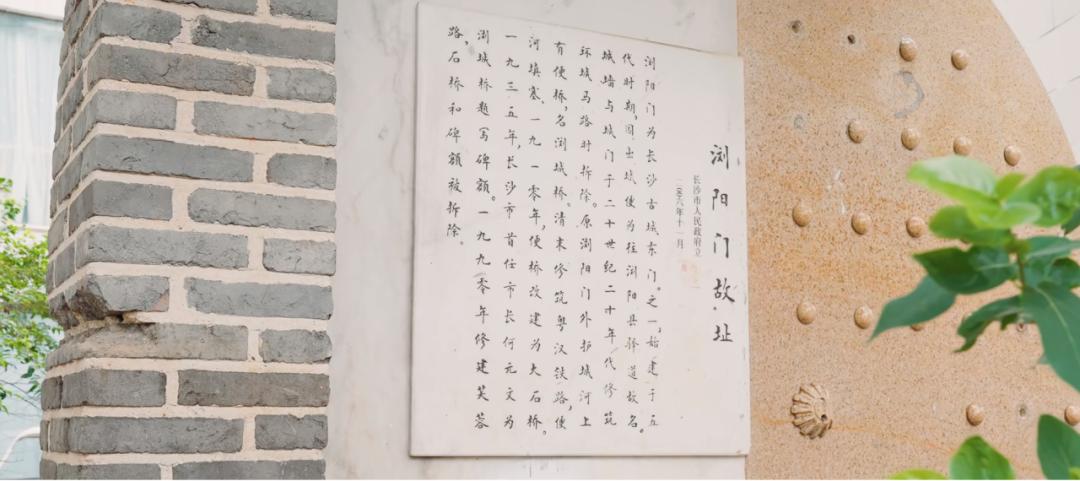 浏阳门故址
长沙市人民政府立
二〇〇六年十一月
浏阳门为长沙古城东门。之一,始建于五
代时期,因出城便为往浏阳县驿道故名。
城墙与城门于二十世纪二十年代修筑
环城马路时拆除。原浏阳门外护城河上
有便桥,名浏城桥。清末修筑粤汉铁路,便
河填塞、一九一零年,便桥改建为大石桥。
一九三五年,长沙市首任市长何元文为
浏城桥题写碑额。一九九零年修建芙蓉
路,石桥和碑额被拆除。